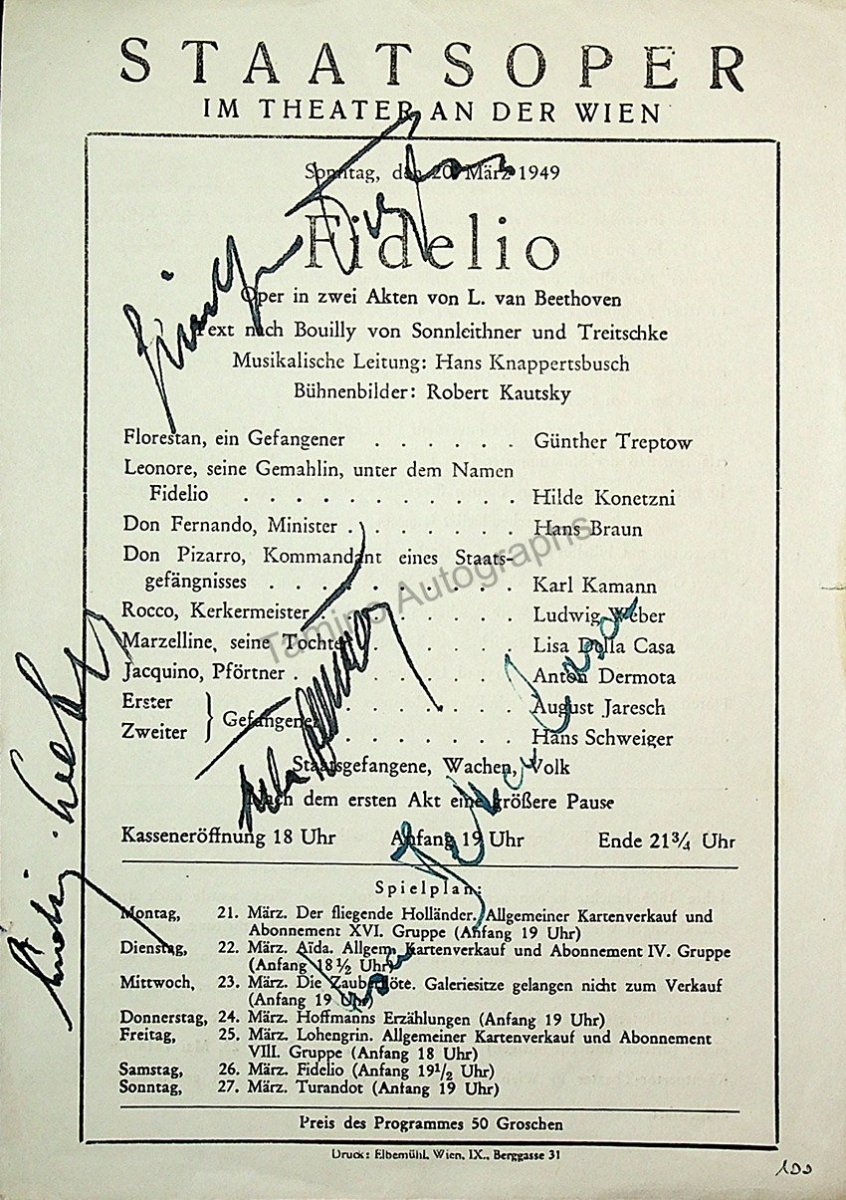 STAATSOPER
IM THEATER AN DER WIEN
Sonntag, den 20. März 1949
Fidelio
Oper in zwei Akten von L. van Beethoven
Text nach Bouilly von Sonnleithner und Treitschke
Musikalische Leitung: Hans Knappertsbusch
Bühnenbilder: Robert Kautsky
Florestan, ein Gefangener . . . . . . Günther Treptow
Leonore, seine Gemahlin, unter dem Namen
Fidelio . . . . . . . . . . . Hilde Konetzni
Don Fernando, Minister . . . . . . . Hans Braun
Don Pizarro, Kommandant eines Staats-
gefängnisses . . . . . . . . . . Karl Kamann
Rocco, Kerkermeister . . . . . . . . Ludwig Weber
Marzelline, seine Tochter . . . . . . Lisa Della Casa
Jacquino, Pförtner . . . . . . . . . Anton Dermota
Erster } Gefangener . . . . . . . August Jaresch
Zweiter } . . . . . . . Hans Schweiger
Staatsgefangene, Wachen, Volk
Nach dem ersten Akt eine größere Pause
Kasseneröffnung 18 Uhr Anfang 19 Uhr Ende 21 3/4 Uhr
Spielplan:
Montag, 21. März. Der fliegende Holländer. Allgemeiner Kartenverkauf und
Abonnement XVI. Gruppe (Anfang 19 Uhr)
Dienstag, 22. März. Aïda. Allgem. Kartenverkauf und Abonnement IV. Gruppe
(Anfang 18 1/2 Uhr)
Mittwoch, 23. März. Die Zauberflöte. Galeriesitze gelangen nicht zum Verkauf
(Anfang 19 Uhr)
Donnerstag, 24. März. Hoffmanns Erzählungen (Anfang 19 Uhr)
Freitag, 25. März. Lohengrin. Allgemeiner Kartenverkauf und Abonnement
VIII. Gruppe (Anfang 18 Uhr)
Samstag, 26. März. Fidelio (Anfang 19 1/2 Uhr)
Sonntag, 27. März. Turandot (Anfang 19 Uhr)
Preis des Programmes 50 Groschen
Druck: Elbemühl, Wien, IX., Berggasse 31
Günther Treptow
Ludwig Weber
Lisa Della Casa
Tamino Autographs
100